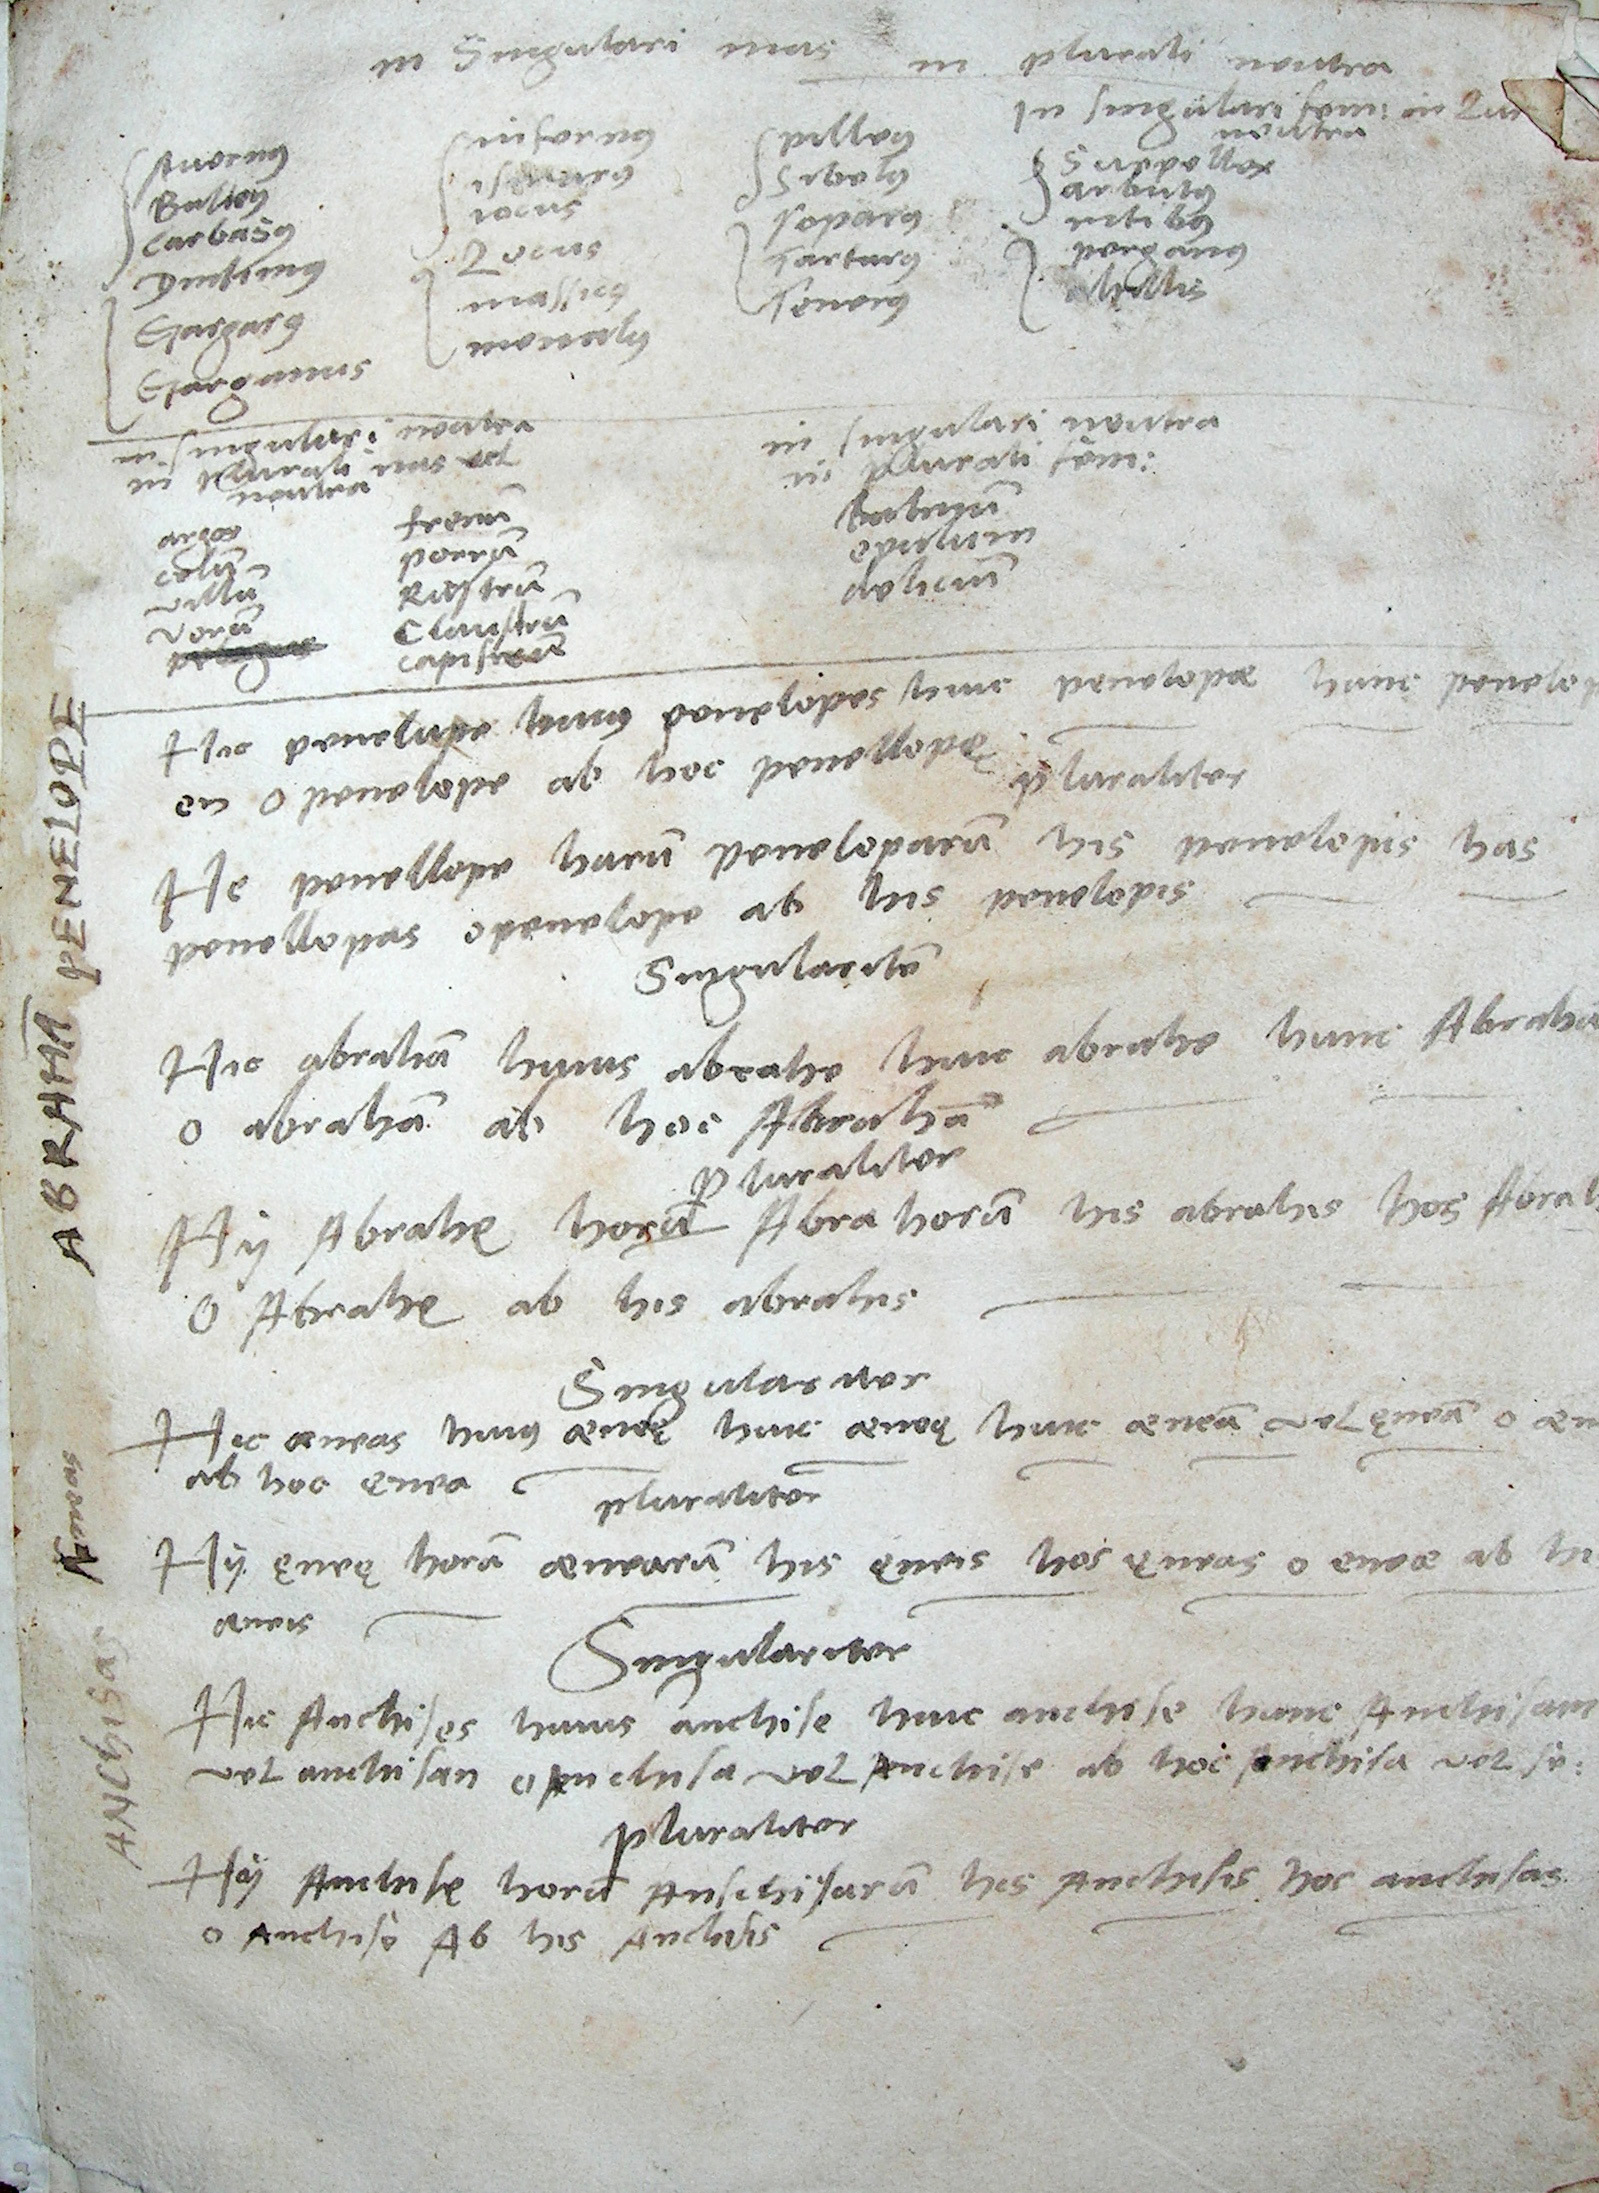 in Singulari mas in plurali neutra
In singulari fem: in
neutra
Auernꝰ
Balteꝰ
Carbasꝰ
Dindimꝰ
Gargarꝰ
Garganus
infernꝰ
ismarꝰ
iocus
Locus
massicꝰ
menalꝰ
pilleꝰ
Sibelꝰ
soparꝰ
tartarꝰ
Senenꝰ
Supellex
arbutꝰ
intibꝰ
perganꝰ
altillis
in singulari neutra
in plurali mas vel
neutra
argos
celū
villū
verū
frenū
porrū
Rastrū
Claustrū
capistrū
in singulari neutra
in plurali fem:
balneū
epulum
deliciū
Hec penelope huiꝰ penelopes huic penelopæ hanc penelop
en O penelope ab hoc penellopę
pluraliter
He penellope harū peneloparū his penelopis has
penellopas o penelope ab his penelopis
Singularitē
Hic abrahā huius abrahe huic abrahe hunc Abrahā
O abrahā ab hoc Abrahā
Pluraliter
Hÿ Abrahę horū Abrahorū his abrahis hos Abrah
O Abrahę ab his abrahis
Singulariter
Hic æneas huiꝰ æneę huic æneę hunc æneā vel ęneā o æn
ab hoc ęnea
pluraliter
Hÿ ęneę horū ænearū his ęneis hos ęneas o eneæ ab hi
æneis
Singulariter
Hic Anchises huius anchise huic anchise hunc Anchisam
vel anchisan o Anchisa vel Anchise ab hoc Anchisa vel se:
pluraliter
Hÿ Anchisę horū Anschisarū his Anchisis hos anchisas
o Anchise Ab his Anchisis
PENELOPE
ABRAHAM
Aeneas
ANCHISAS